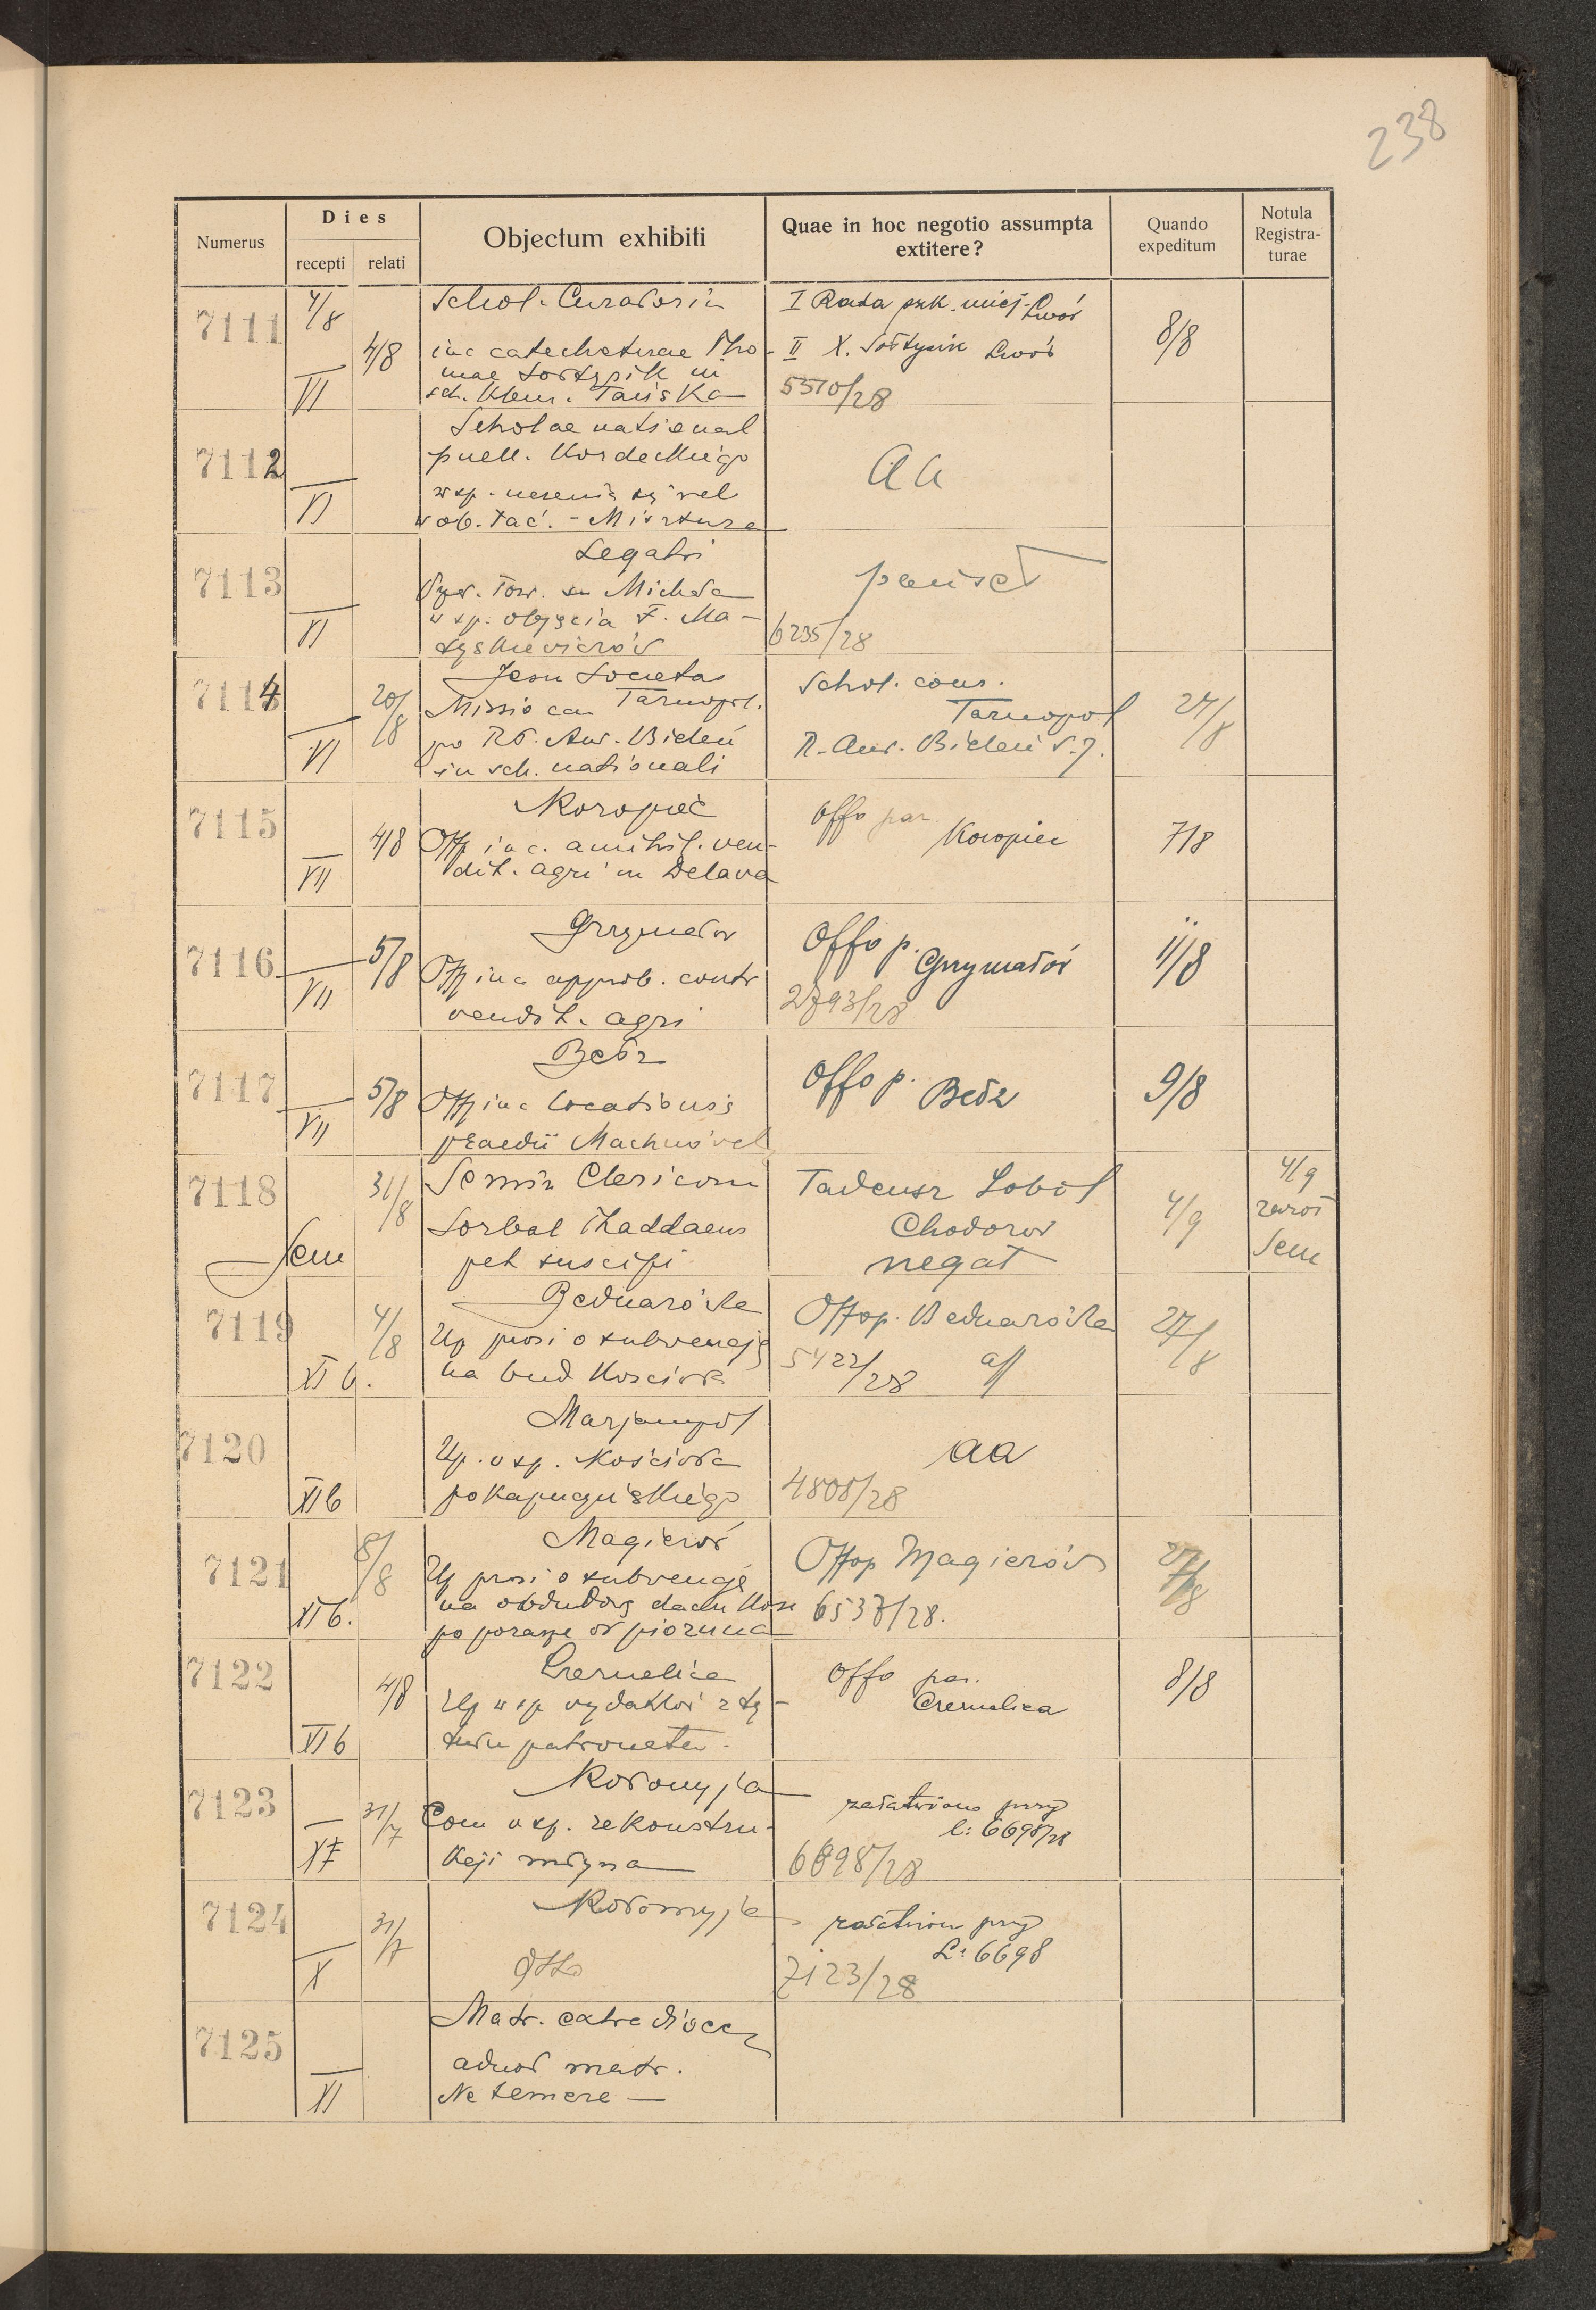 238
Numerus
Dies
recepti
relati
Objectum exhibiti
Quae in hoc negotio assumpta extitere?
Quando expeditum
Notula Registra-
turae
7111
4/8
VI
4/8
Schol. Curatoria
inc catecheturae Tho-
mae Sołtysik in
sch. Klem. Tańska
I Rada szk. miej. Lwów
II X. Sołtysik Lwów
5510/28
8/8
7112
VI
Scholae national
puell. Kordeckiego
w ob. łać. -
aa
7113
VI
Legatri
Tow. Michała
w sp. objęcia F. Ma-
6235/28
7114
VI
20/8
Jesu Societas
Missio can Tarnopol.
po Ant. Bieleń
in sch. nationali
Schol. cons.
Tarnopol
R. Ant. Bieleń S. J.
27/8
7115
VII
4/8
Koropiec
Offp inc. ven-
dit. agri in Delava
Offo par.
Koropiec
7/8
7116
VII
5/8
Grzymałów
Offp inc approb. contr
vendit. agri
Offo p. Grzymałów
2793/28
11/8
7117
VII
5/8
Bełz
Offp inc locationis
praedii
Offo p. Bełz
9/8
7118
Sem
31/8
Semin Clericorum
Thaddaeus
pet suscipi
Tadeusz
Chodorów
negat
4/9
4/9
Sem
7119
XI b.
4/8
Bednarówka
Up prosi o subwencję
na bud Kościoła
Offop. Bednarówka
5422/28
27/8
7120
XI b
Marjampol
Up. w sp. Kościoła
pokapucyńskiego
aa
4808/28
7121
XI b.
8/8
Magierów
Up prosi o subwencję
na odbudowę dachu Kośc
po porażce od pioruna
Offop Magierów
6537/28.
27/8
7122
XI b
4/8
Czernelica
Up w sp wydatków z ty-
tułu patronatu.
Offo par.
Czernelica
8/8
7123
31/7
Kołomyja
Com w sp. rekonstru-
kcji młyna
załatwiono przy
l: 6698/28
6698/28
7124
X
31/7
Kołomyja
dtto
załatwion przy
L: 6698
7123/28
7125
XI
Matr. extra dioec
adnot matr.
Ne temere —